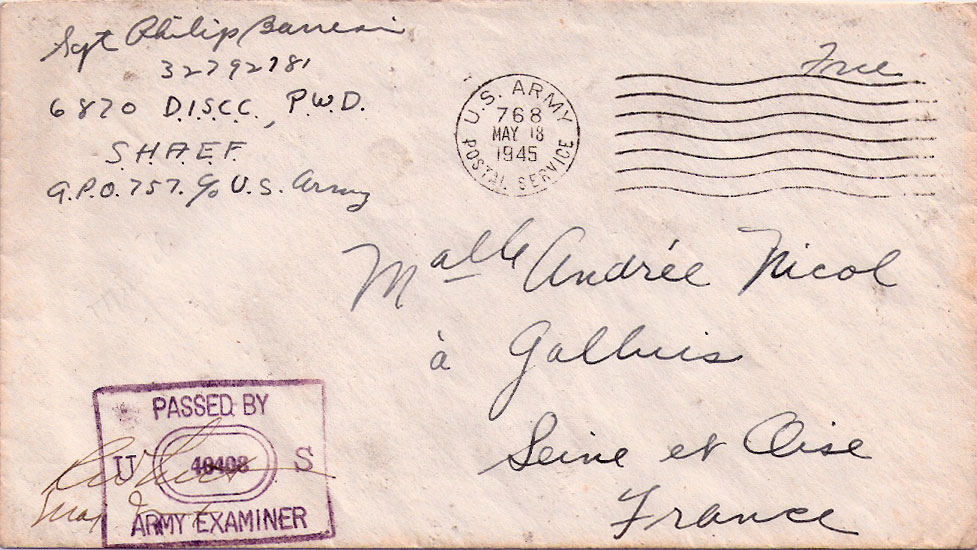 Sgt Philip Barresi
32792781
6820 D.I.S.C.C., P.W.D.
S.H.A.E.F.
A.P.O. 757. c/o U.S. Army
U.S. ARMY
768
MAY 18
1945
POSTAL SERVICE
Free
Malle Andrée Nicol
à Galluis
Seine et Oise
France
PASSED BY
U 40408 S
ARMY EXAMINER